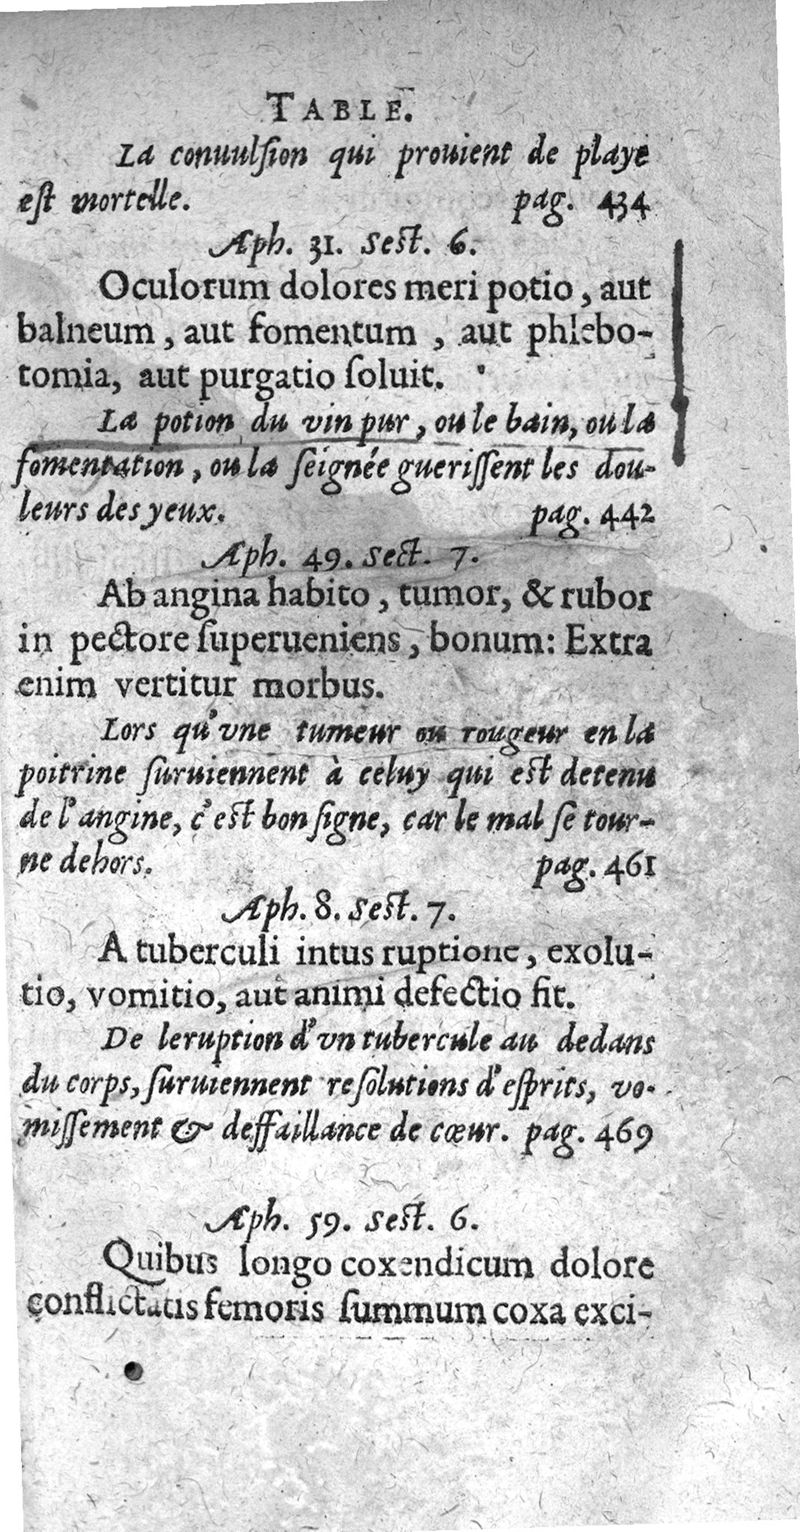 TABLE.
La conuulſion qui prouient de playe
eſt mortelle. pag. 434
Aph. 31. sect. 6.
Oculorum dolores meri potio, aut
balneum, aut fomentum, aut phlebo-
tomia, aut purgatio ſoluit.
La potion du vin pur, ou le bain, ou la
fomentation, ou la ſeignée gueriſſent les dou-
leurs des yeux. pag. 442
Aph. 49. sect. 7.
Ab angina habito, tumor, & rubor
in pectore ſuperueniens, bonum: Extra
enim vertitur morbus.
Lors qu'vne tumeur ou rougeur en la
poitrine ſuruiennent à celuy qui eſt detenu
de l'angine, c'eſt bon ſigne, car le mal ſe tour-
ne dehors. pag. 461
Aph. 8. sect. 7.
A tuberculi intus ruptione, exolu-
tio, vomitio, aut animi defectio fit.
De leruption d'vn tubercule au dedans
du corps, ſuruiennent reſolutions d'eſprits, vo-
miſſement & deffaillance de cœur. pag. 469
Aph. 59. sect. 6.
Quibus longo coxendicum dolore
conflictatis femoris ſummum coxa exci-